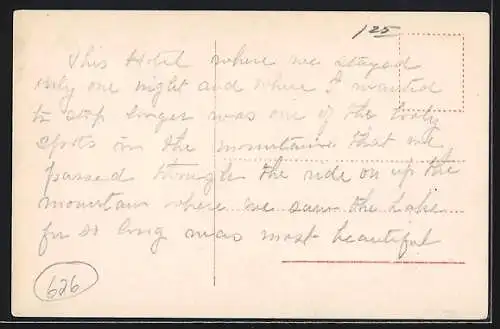 125
This Hotel where we stayed
only one night and where I wanted
to stop longer was one of the
spots in the mountains that we
passed through the ride on up the
mountain where we saw the Lake
for so long was most beautiful
626